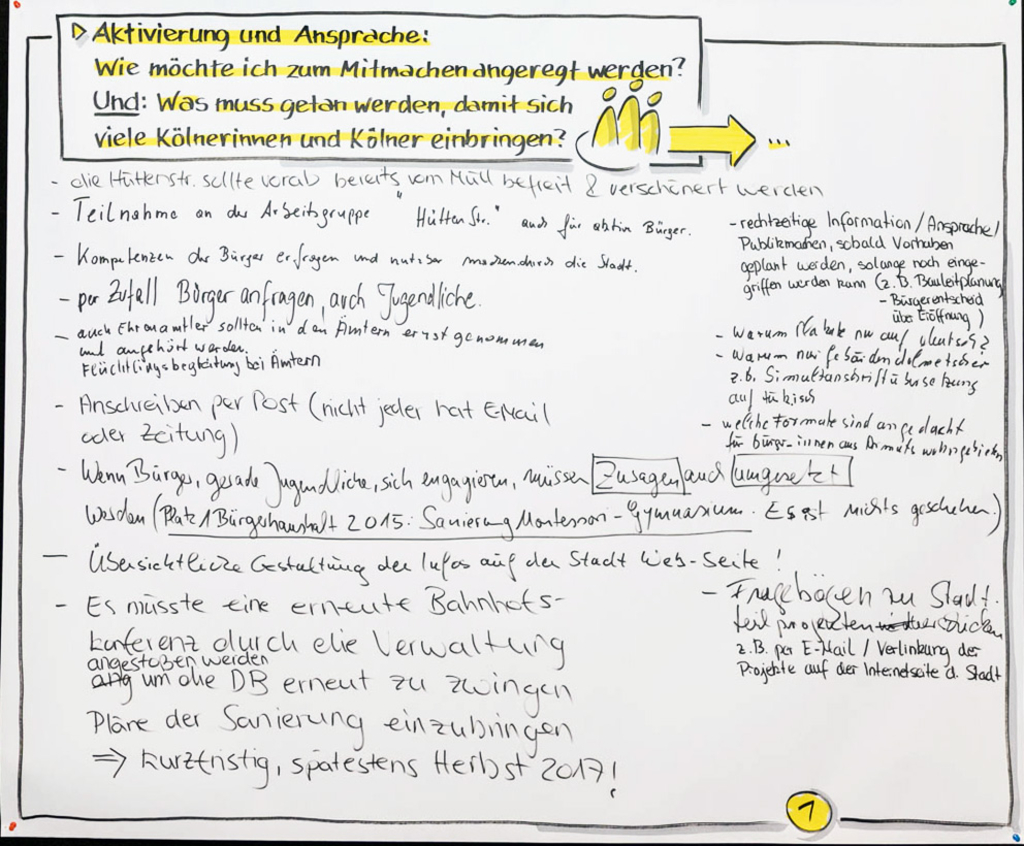 Aktivierung und Ansprache:
Wie möchte ich zum Mitmachen angeregt werden?
Und: Was muss getan werden, damit sich
viele Kölnerinnen und Kölner einbringen?
...
- die Hüttenstr. sollte vorab bereits vom Müll befreit & verschönert werden
- Teilnahme an der Arbeitsgruppe "Hütten Str." auch für aktive Bürger.
- Kompetenzen der Bürger erfragen und nutzbar machen durch die Stadt.
- per Zufall Bürger anfragen, auch Jugendliche.
- auch Ehrenamtler sollten in den Ämtern ernst genommen
und angehört werden.
Flüchtlingsbegleitung bei Ämtern
- Anschreiben per Post (nicht jeder hat E-Mail
oder Zeitung)
- Wenn Bürger, gerade Jugendliche, sich engagieren, müssen Zusagen auch umgesetzt
werden (Platz 1 Bürgerhaushalt 2015: Sanierung Montessori-Gymnasium. Es ist nichts geschehen.)
- Übersichtliche Gestaltung der Infos auf der Stadt Web-Seite!
- Es müsste eine erneute Bahnhofs-
konferenz durch die Verwaltung
angestoßen werden
um die DB erneut zu zwingen
Pläne der Sanierung einzubringen
⇒ kurzfristig, spätestens Herbst 2017!
- rechtzeitige Information/Ansprache/
Publikmachen, sobald Vorhaben
geplant werden, solange noch einge-
griffen werden kann (z.B. Bauleitplanung
- Bürgerentscheid
über Eröffnung)
- Warum Plakate nur auf deutsch?
- Warum nur Gebärdendolmetscher
z.b. Simultanschriftübersetzung
auf türkisch
- welche Formate sind angedacht
für bürger-innen aus Armutswohngebieten
- Fragebögen zu Stadt-
teilprojekten schicken
z.B. per E-Mail / Verlinkung der
Projekte auf der Internetseite d. Stadt
1